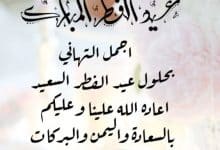 عيد الفطر المبارك
اجمل التهاني
بحلول عيد الفطر السعيد
اعاده الله علينا وعليكم
بالسعادة واليمن والبركات